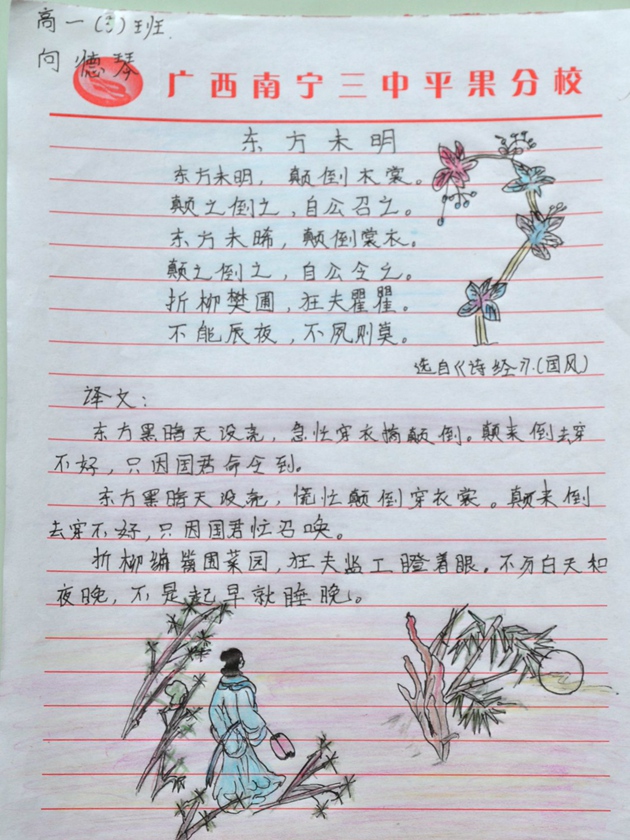 高一(3)班.
向德琴
广西南宁三中平果分校
东方未明
东方未明，颠倒衣裳。
颠之倒之，自公召之。
东方未晞，颠倒裳衣。
颠之倒之，自公令之。
折柳樊圃，狂夫瞿瞿。
不能辰夜，不夙则莫。
选自《诗经》.(国风)
译文：
东方黑暗天没亮，急忙穿衣搞颠倒。颠来倒去穿
不好，只因国君命令到。
东方黑暗天没亮，慌忙颠倒穿衣裳。颠来倒
去穿不好，只因国君忙召唤。
折柳编篱围菜园，狂夫监工瞪着眼。不分白天和
夜晚，不是起早就睡晚。